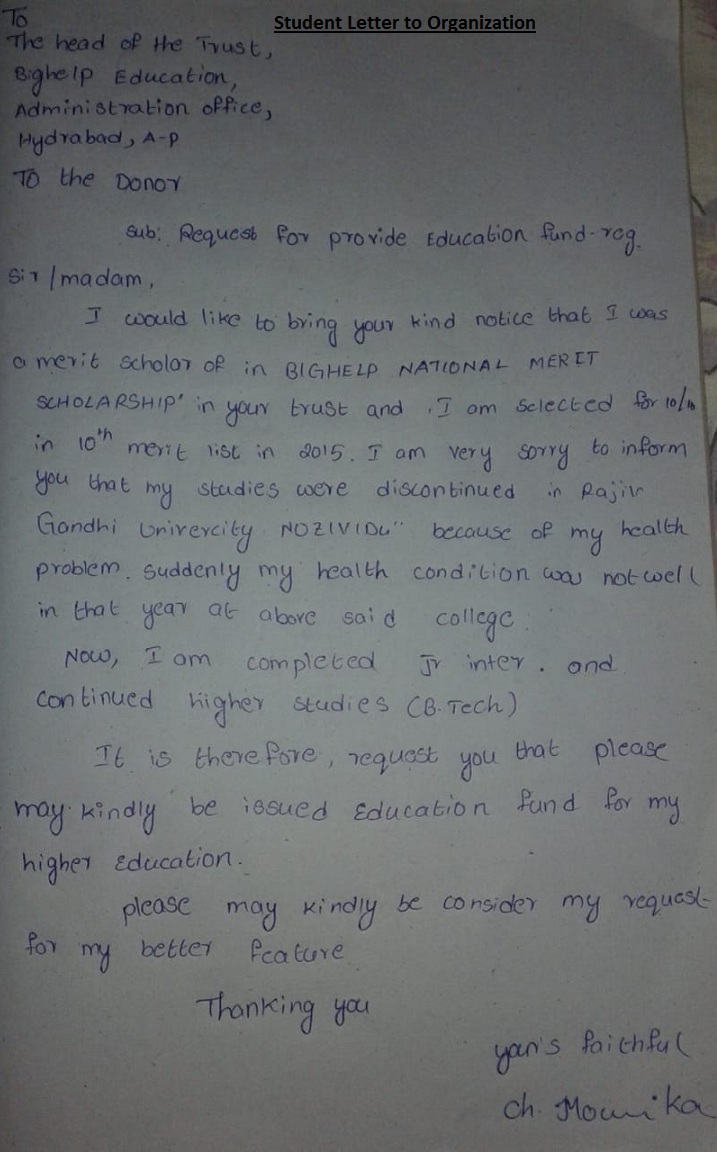 Student Letter to Organization
To
The head of the Trust,
Bighelp Education,
Administration office,
Hydrabad, A-P
To the Donor
Sub: Request for provide Education fund-reg.
Sir/madam,
I would like to bring your kind notice that I was
a merit scholar of in BIGHELP NATIONAL MERIT
SCHOLARSHIP' in your trust and . I am selected for 10/10
in 10th merit list in 2015. I am very sorry to inform
you that my studies were discontinued in Rajiv
Gandhi Univercity NOZIVIDU" because of my health
problem. Suddenly my health condition was not well
in that year at above said college.
Now, I am completed Jr inter. and
continued higher studies (B.Tech)
It is therefore, request you that please
may kindly be issued Education fund for my
higher Education.
please may kindly be consider my request
for my better feature
Thanking you
yar's faithful
ch. Mounika